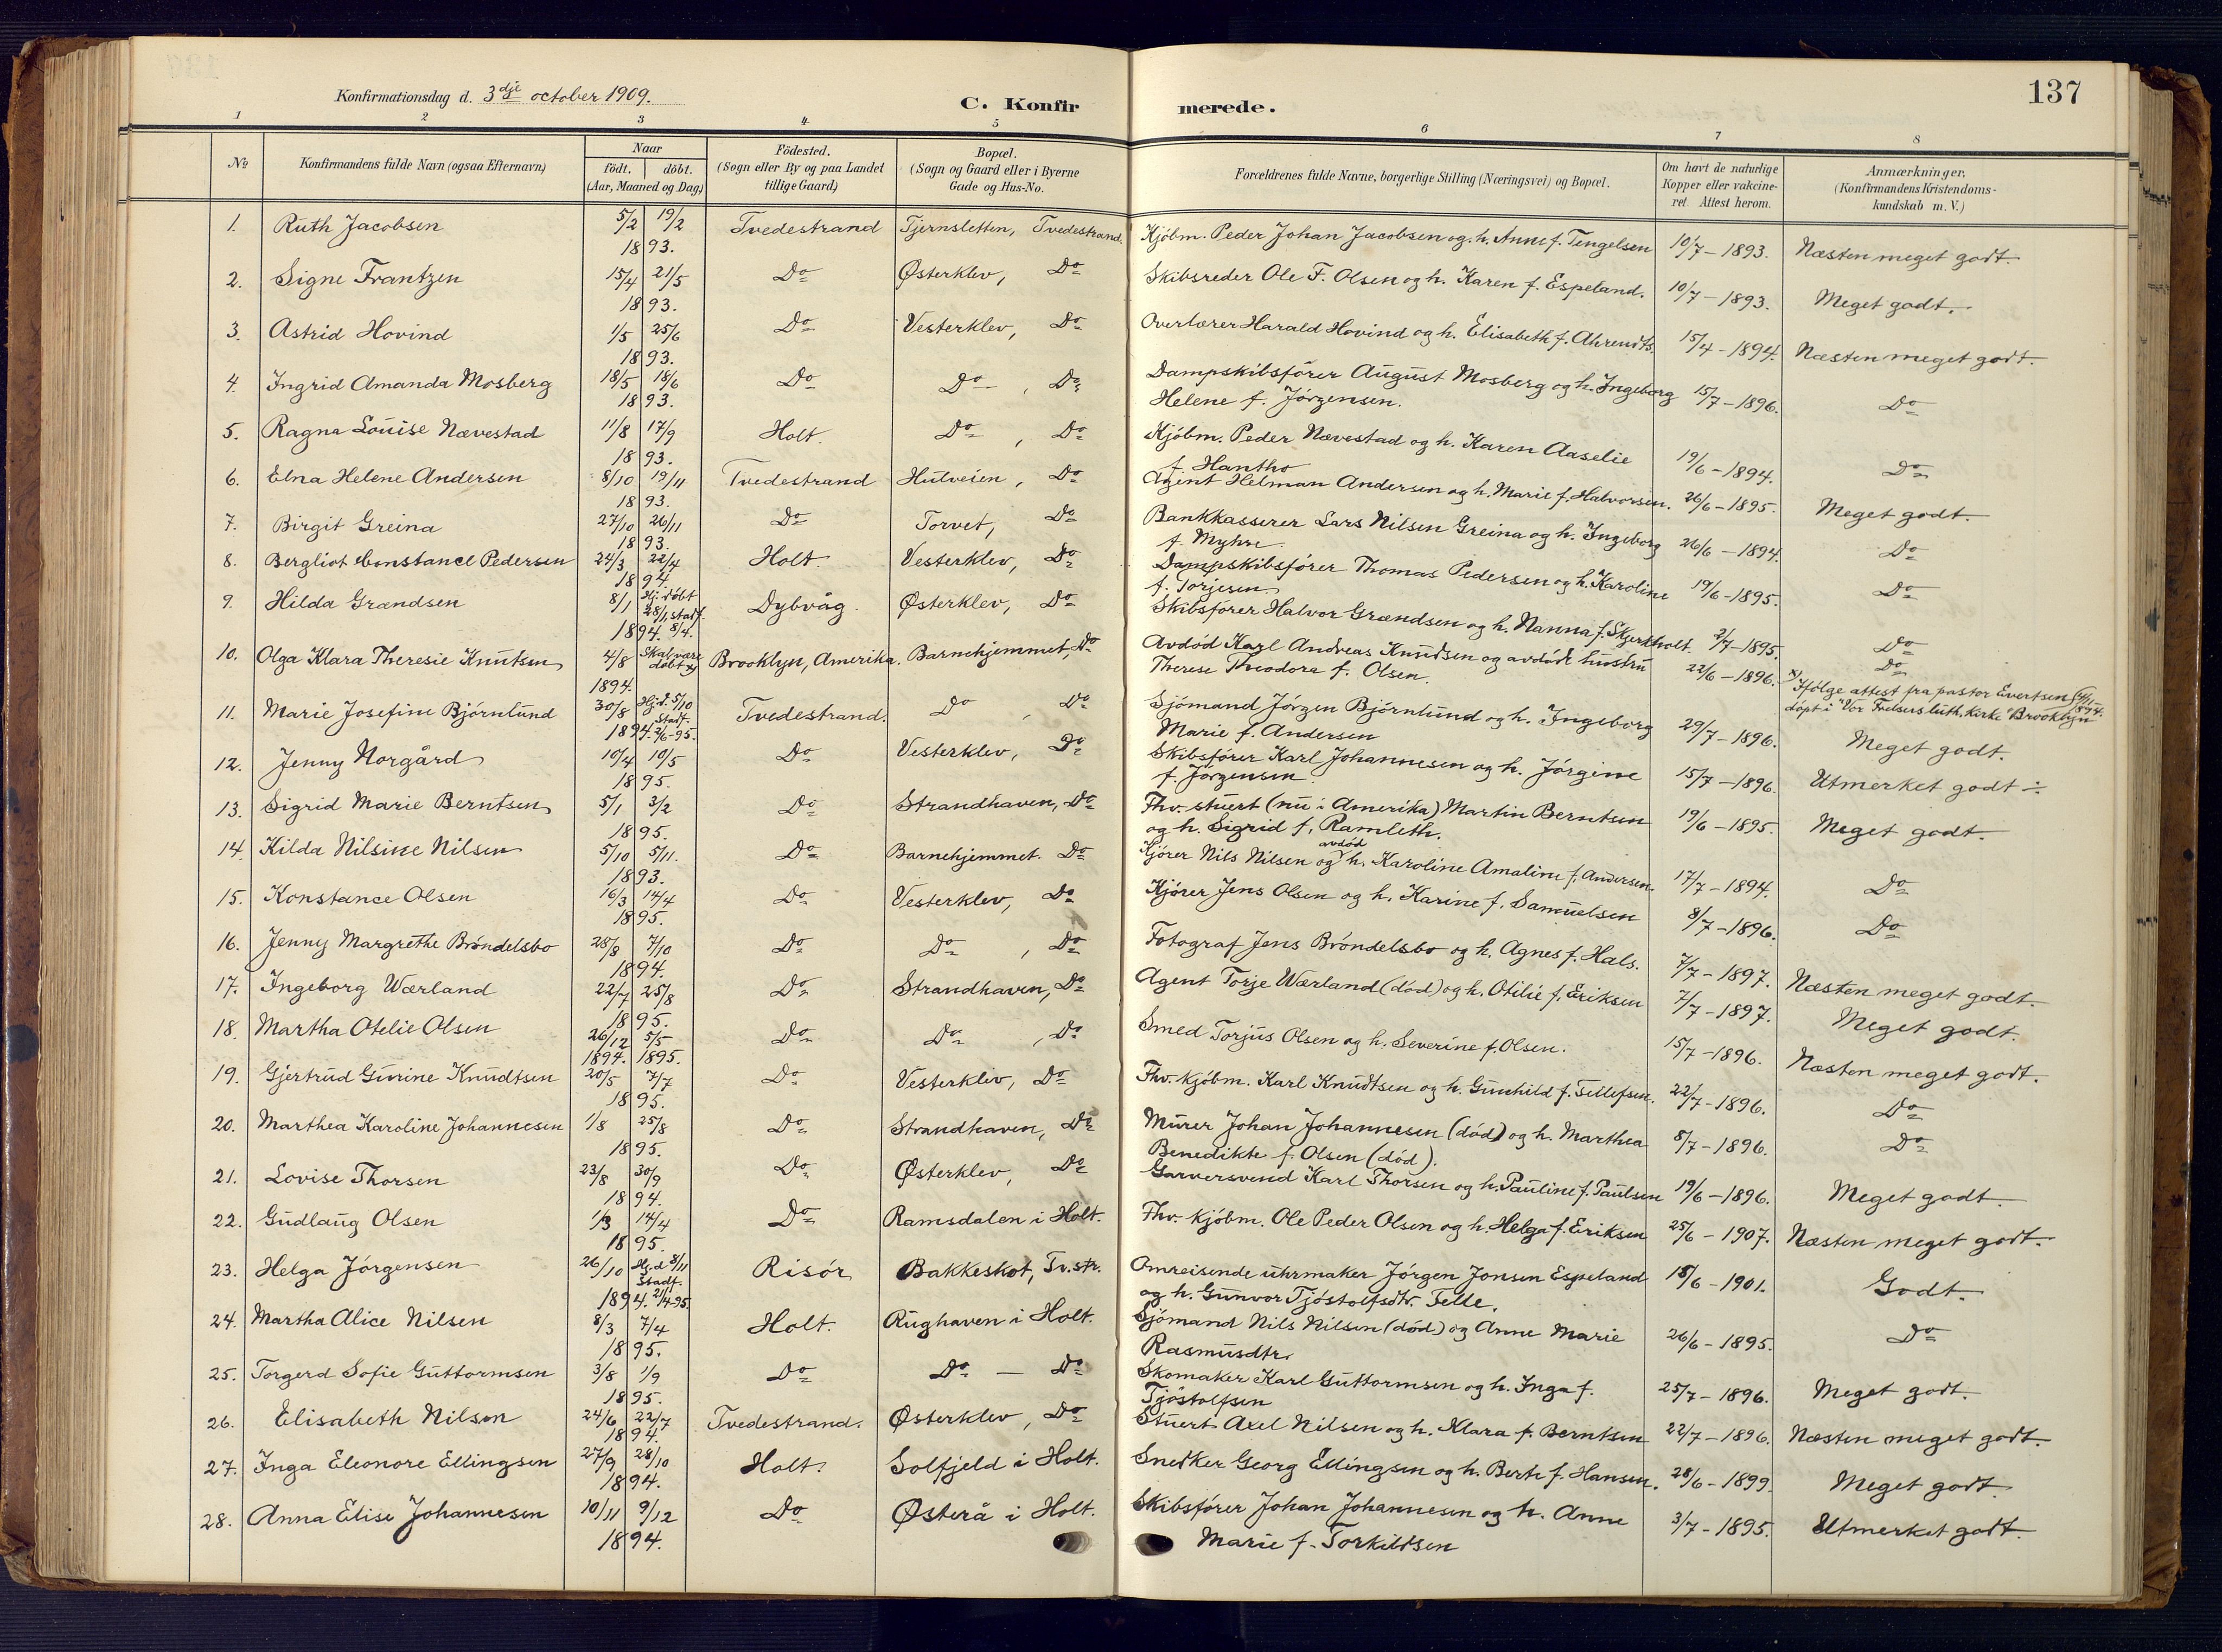 137
Konfirmationsdag d. 3dje october 1909.
C. Konfir merede.
1 2 3 4 5 6 7 8
No
Konfirmandens fulde Navn (ogsaa Efternavn)
Naar
födt. döbt.
(Aar, Maaned og Dag)
Födested.
(Sogn eller By og paa Landet
tillige Gaard)
Bopæl.
(Sogn og Gaard eller i Byerne
Gade og Hus-No.
Forældrenes fulde Navne, borgerlige Stilling (Næringsvei) og Bopæl.
Om havt de naturlige
Kopper eller vakcine-
ret. Attest herom.
Anmærkninger,
(Konfirmandens Kristendoms-
kundskab m. V.)
1. Ruth Jacobsen 5/2 19/2 Tvedestrand Tjernsletten, Tvedestrand. Kjöbm. Peder Johan Jacobsen og h. Anne f. Tengelsen 10/7-1893. Næsten meget godt.
1893.
2. Signe Frantzen 15/4 21/5 Do Østerklev, Do Skibsreder Ole F. Olsen og h. Karen f. Espeland. 10/7-1893. Meget godt.
1893.
3. Astrid Hovind 1/5 25/6 Do Vesterklev, Do Overlærer Harald Hovind og h. Elisabeth f. Ahrendts. 15/4-1894. Næsten meget godt.
1893.
4. Ingrid Amanda Mosberg 18/5 18/6 Do Do, Do Dampskibsförer August Mosberg og h. Ingeborg 15/7-1896. Do
1893. Helene f. Jörgensen.
5. Ragna Louise Nævestad 11/8 17/9 Holt. Do, Do Kjöbm. Peder Nævestad og h. Karen Aaselie 19/6-1894. Do
1893. f. Hantho
6. Elna Helene Andersen 8/10 19/11 Tvedestrand Hulveien, Do Agent Helman Andersen og h. Marie f. Halvorsen. 26/6-1895. Meget godt.
1893.
7. Birgit Greina 27/10 26/11 Do Torvet, Do Bankkasserer Lars Nilsen Greina og h. Ingeborg 26/6-1894. Do
1893. f. Myhre.
8. Bergliot Constance Pedersen 24/3 22/4 Holt. Vesterklev, Do Dampskibsförer Thomas Pedersen og h. Karoline 19/6-1895. Do
1894. f. Torjesen
9. Hilda Grændsen 8/1 Hj. döbt Dybvåg. Østerklev, Do Skibsförer Halvor Grændsen og h. Nanna f. Skjerkholt. 2/7-1895. Do
28/1, stadf.
1894. 8/4.
10. Olga Klara Theresie Knutsen 4/8 Skal være Brooklyn, Amerika. Barnehjemmet, Do Avdöd Karl Andreas Knudsen og avdöde hustru 22/6-1896. Do
döbt x) Therese Theodora f. Olsen.
1894. x) Ifölge attest fra pastor Evertsen
döpt i "Vor Frelsers luth. Kirke" Brooklyn
11. Marie Josefine Björnlund 30/8 Hj.d. 5/10 Tvedestrand. Do, Do Sjömand Jörgen Björnlund og h. Ingeborg 29/7-1896. Meget godt.
Stadf.
1894. 2/6-95. Marie f. Andersen
12. Jenny Norgård 10/4 10/5 Do Vesterklev, Do Skibsförer Karl Johannesen og h. Jörgine 15/7-1896. Utmerket godt ÷
1895. f. Jörgensen.
13. Sigrid Marie Berntsen 5/1 3/2 Do Strandhaven, Do Fhv. stuert (nu i Amerika) Martin Berntsen 19/6-1895. Meget godt.
1895. og h. Sigrid f. Ramleth.
14. Hilda Nilsine Nilsen 5/10 5/11. Do Barnehjemmet. Do Kjörer Nils Nilsen og avdöd h. Karoline Amaline f. Andersen. 17/7-1894. Do
1893.
15. Konstance Olsen 16/3 14/4 Do Vesterklev, Do Kjörer Jens Olsen og h. Karine f. Samuelsen 8/7-1896. Do
1895.
16. Jenny Margrethe Bröndelsbo 28/8 7/10 Do Do, Do Fotograf Jens Bröndelsbo og h. Agnes f. Hals. 7/7-1897. Næsten meget godt.
1894.
17. Ingeborg Wærland 22/7 25/8 Do Strandhaven, Do Agent Torje Wærland (död) og h. Otilie f. Eriksen 7/7-1897. Meget godt.
1895.
18. Martha Otelie Olsen 26/12 5/5 Do Do, Do Smed Torjus Olsen og h. Severine f. Olsen. 15/7-1896. Næsten meget godt.
1894. 1895.
19. Gjertrud Gurine Knudtsen 20/5 7/7 Do Vesterklev, Do Fhv. kjöbm. Karl Knudtsen og h. Gunhild f. Tellefsen. 22/7-1896. Do
1895.
20. Marthea Karoline Johannesen 1/8 25/8 Do Strandhaven, Do Murer Johan Johannesen (död) og h. Marthea 8/7-1896. Do
1895. Benedikte f. Olsen (död).
21. Lovise Thorsen 23/8 30/9 Do Østerklev, Do Garversvend Karl Thorsen og h. Pauline f. Paulsen 19/6-1896. Meget godt
1894.
22. Gudlaug Olsen 1/3 14/4 Do Ramsdalen i Holt. Fhv. kjöbm. Ole Peder Olsen og h. Helga f. Eriksen 25/6-1907. Næsten meget godt.
1895.
23. Helga Jörgensen 26/10 Hj.d 8/11 Risör Bakkeskot, Tv.str. Omreisende uhrmaker Jörgen Jonsen Espeland 18/6-1901. Godt.
Stadf.
1894. 21/4-95. og h. Gunvor Tjöstolfsdtr. Felle.
24. Martha Alice Nilsen 8/3 7/4 Holt. Rughaven i Holt. Sjömand Nils Nilsen (död) og Anne Marie 26/6-1895. Do
1895. Rasmusdtr.
25. Torgerd Sofie Guttormsen 3/8 1/9 Do Do — Do Skomaker Karl Guttormsen og h. Inga f. 25/7-1896. Meget godt.
1895. Tjöstolfsen
26. Elisabeth Nilsen 24/6 22/7 Tvedestrand. Østerklev, Do Stuert Axel Nilsen og h. Klara f. Berntsen 22/7-1896. Næsten meget godt.
1894.
27. Inga Eleonore Ellingsen 27/9 28/10 Holt. Solfjeld i Holt. Snedker Georg Ellingsen og h. Berte f. Hansen. 28/6-1899. Meget godt
1894.
28. Anna Elise Johannesen 10/11 9/12 Do Østerå i Holt. Skibsförer Johan Johannesen og h. Anne 3/7-1895. Utmerket godt.
1894. Marie f. Torkildsen